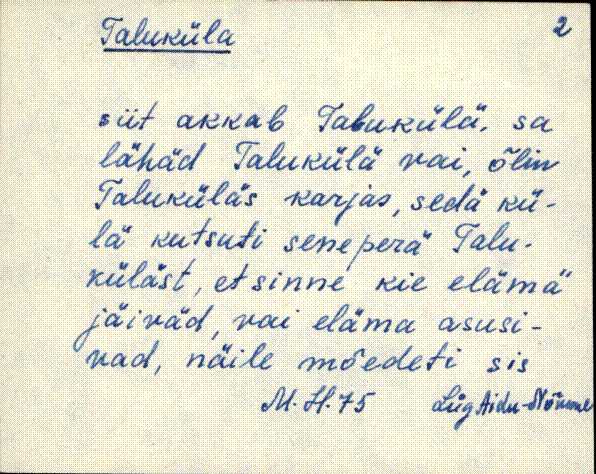 Taluküla
2
siit akkab Talukülä, sa
lähäd Talukülä vai, õlin
Taluküläs karjas, sedä kü-
lä kutsuti seneperä Talu-
küläst, et sinne kie elämä
jäiväd, vai eläma asusi-
vad, näile mõedeti sis
M. H. 75 Lüg Aidu-Nõmme